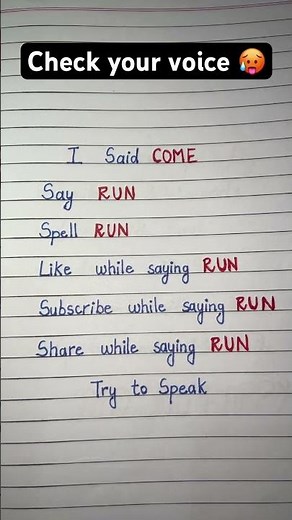 Check your voice 🥵
I Said COME
Say RUN
Spell RUN
Like while saying RUN
Subscribe while saying RUN
Share while saying RUN
Try to Speak